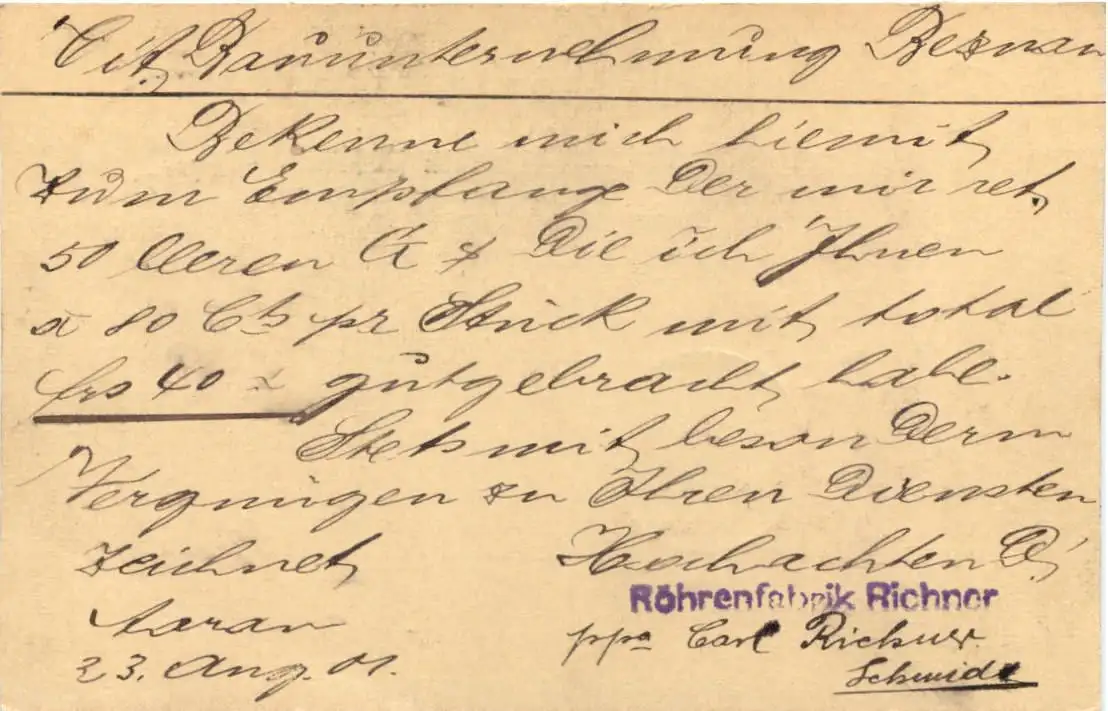 Tit. Bauunternehmung Beznau
Bekenne mich hiemit
zum Empfange der mir ret.
50 leeren die ich Ihnen
à 80 Cts pr Stück mit total
frs 40 gutgebracht habe.
Stets mit besonderm
Vergnügen zu Ihren Diensten
zeichnet Hochachtend!
Röhrenfabrik Richner
Aarau ppa Carl Richner
23. Aug. 01. Schmidt